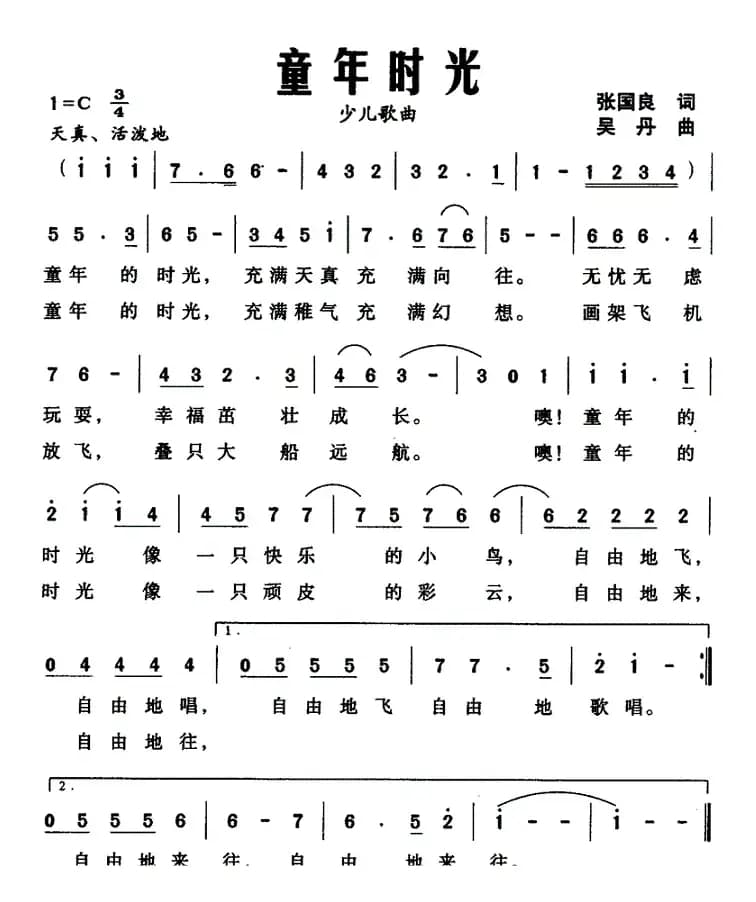 童年时光
1=C 3/4
少儿歌曲
张国良 词
天真、活泼地
吴丹 曲
(i i i | 7 . 6 6 - | 4 3 2 | 3 2 . 1 | 1 - 1 2 3 4) |
5 5 . 3 | 6 5 - | 3 4 5 i | 7 . 6 7 6 | 5 - - | 6 6 6 . 4 |
童年 的 时光, 充满天真 充 满向 往。 无忧无 虑
童年 的 时光, 充满稚气 充 满幻 想。 画架飞 机
7 6 - | 4 3 2 . 3 | 4 6 3 - | 3 0 1 | i i . i |
玩耍, 幸福茁 壮 成 长。 噢! 童年 的
放飞, 叠只大 船 远 航。 噢! 童年 的
2 i i 4 | 4 5 7 7 | 7 5 7 6 6 | 6 2 2 2 2 |
时光 像 一只快乐 的小 鸟, 自由地飞,
时光 像 一只顽皮 的彩 云, 自由地来,
1.
0 4 4 4 4 | 0 5 5 5 5 | 7 7 . 5 | 2 i - :||
自由地唱, 自由地飞 自由 地 歌唱。
自由地往,
2.
0 5 5 5 6 | 6 - 7 | 6 . 5 2 | i - - | i - - ||
自由地来 往, 自 由 地来 往。